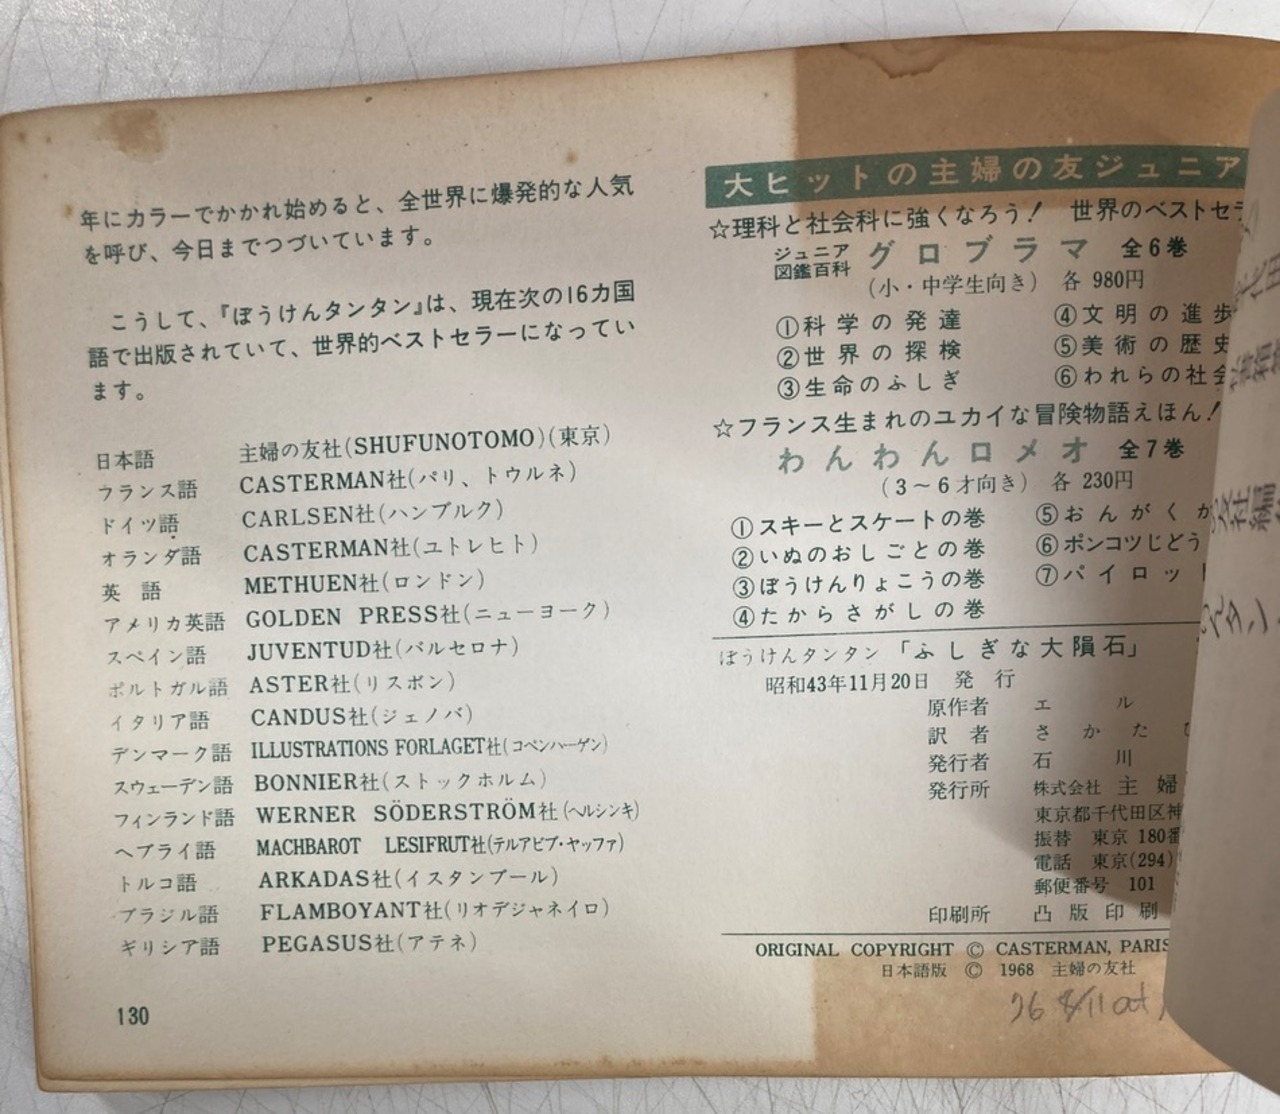 年にカラーでかかれ始めると、全世界に爆発的な人気
を呼び、今日までつづいています。
こうして、『ぼうけんタンタン』は、現在次の16カ国
語で出版されていて、世界的ベストセラーになってい
ます。
日本語 主婦の友社(SHUFUNOTOMO)(東京)
フランス語 CASTERMAN社(パリ、トウルネ)
ドイツ語 CARLSEN社(ハンブルク)
オランダ語 CASTERMAN社(ユトレヒト)
英 語 METHUEN社(ロンドン)
アメリカ英語 GOLDEN PRESS社(ニューヨーク)
スペイン語 JUVENTUD社(バルセロナ)
ポルトガル語 ASTER社(リスボン)
イタリア語 CANDUS社(ジェノバ)
デンマーク語 ILLUSTRATIONS FORLAGET社(コペンハーゲン)
スウェーデン語 BONNIER社(ストックホルム)
フィンランド語 WERNER SÖDERSTRÖM社(ヘルシンキ)
ヘブライ語 MACHBAROT LESIFRUT社(テルアビブ・ヤッファ)
トルコ語 ARKADAS社(イスタンブール)
ブラジル語 FLAMBOYANT社(リオデジャネイロ)
ギリシア語 PEGASUS社(アテネ)
130
大ヒットの主婦の友ジュニア
☆理科と社会科に強くなろう! 世界のベストセラ
ジュニア図鑑百科 グロブラマ 全6巻
(小・中学生向き) 各 980円
①科学の発達 ④文明の進歩
②世界の探検 ⑤美術の歴史
③生命のふしぎ ⑥われらの社会
☆フランス生まれのユカイな冒険物語えほん!
わんわんロメオ 全7巻
(3〜6才向き) 各 230円
①スキーとスケートの巻 ⑤おんがくか
②いぬのおしごとの巻 ⑥ポンコツじどう
③ぼうけんりょこうの巻 ⑦パイロット
④たからさがしの巻
ぼうけんタンタン「ふしぎな大隕石」
昭和43年11月20日 発 行
原作者 エ ル
訳 者 さ か た
発行者 石 川
発行所 株式会社 主 婦
東京都千代田区神
振替 東京 180番
電話 東京(294)
郵便番号 101
印刷所 凸 版 印 刷
ORIGINAL COPYRIGHT © CASTERMAN, PARIS
日本語版 © 1968 主婦の友社